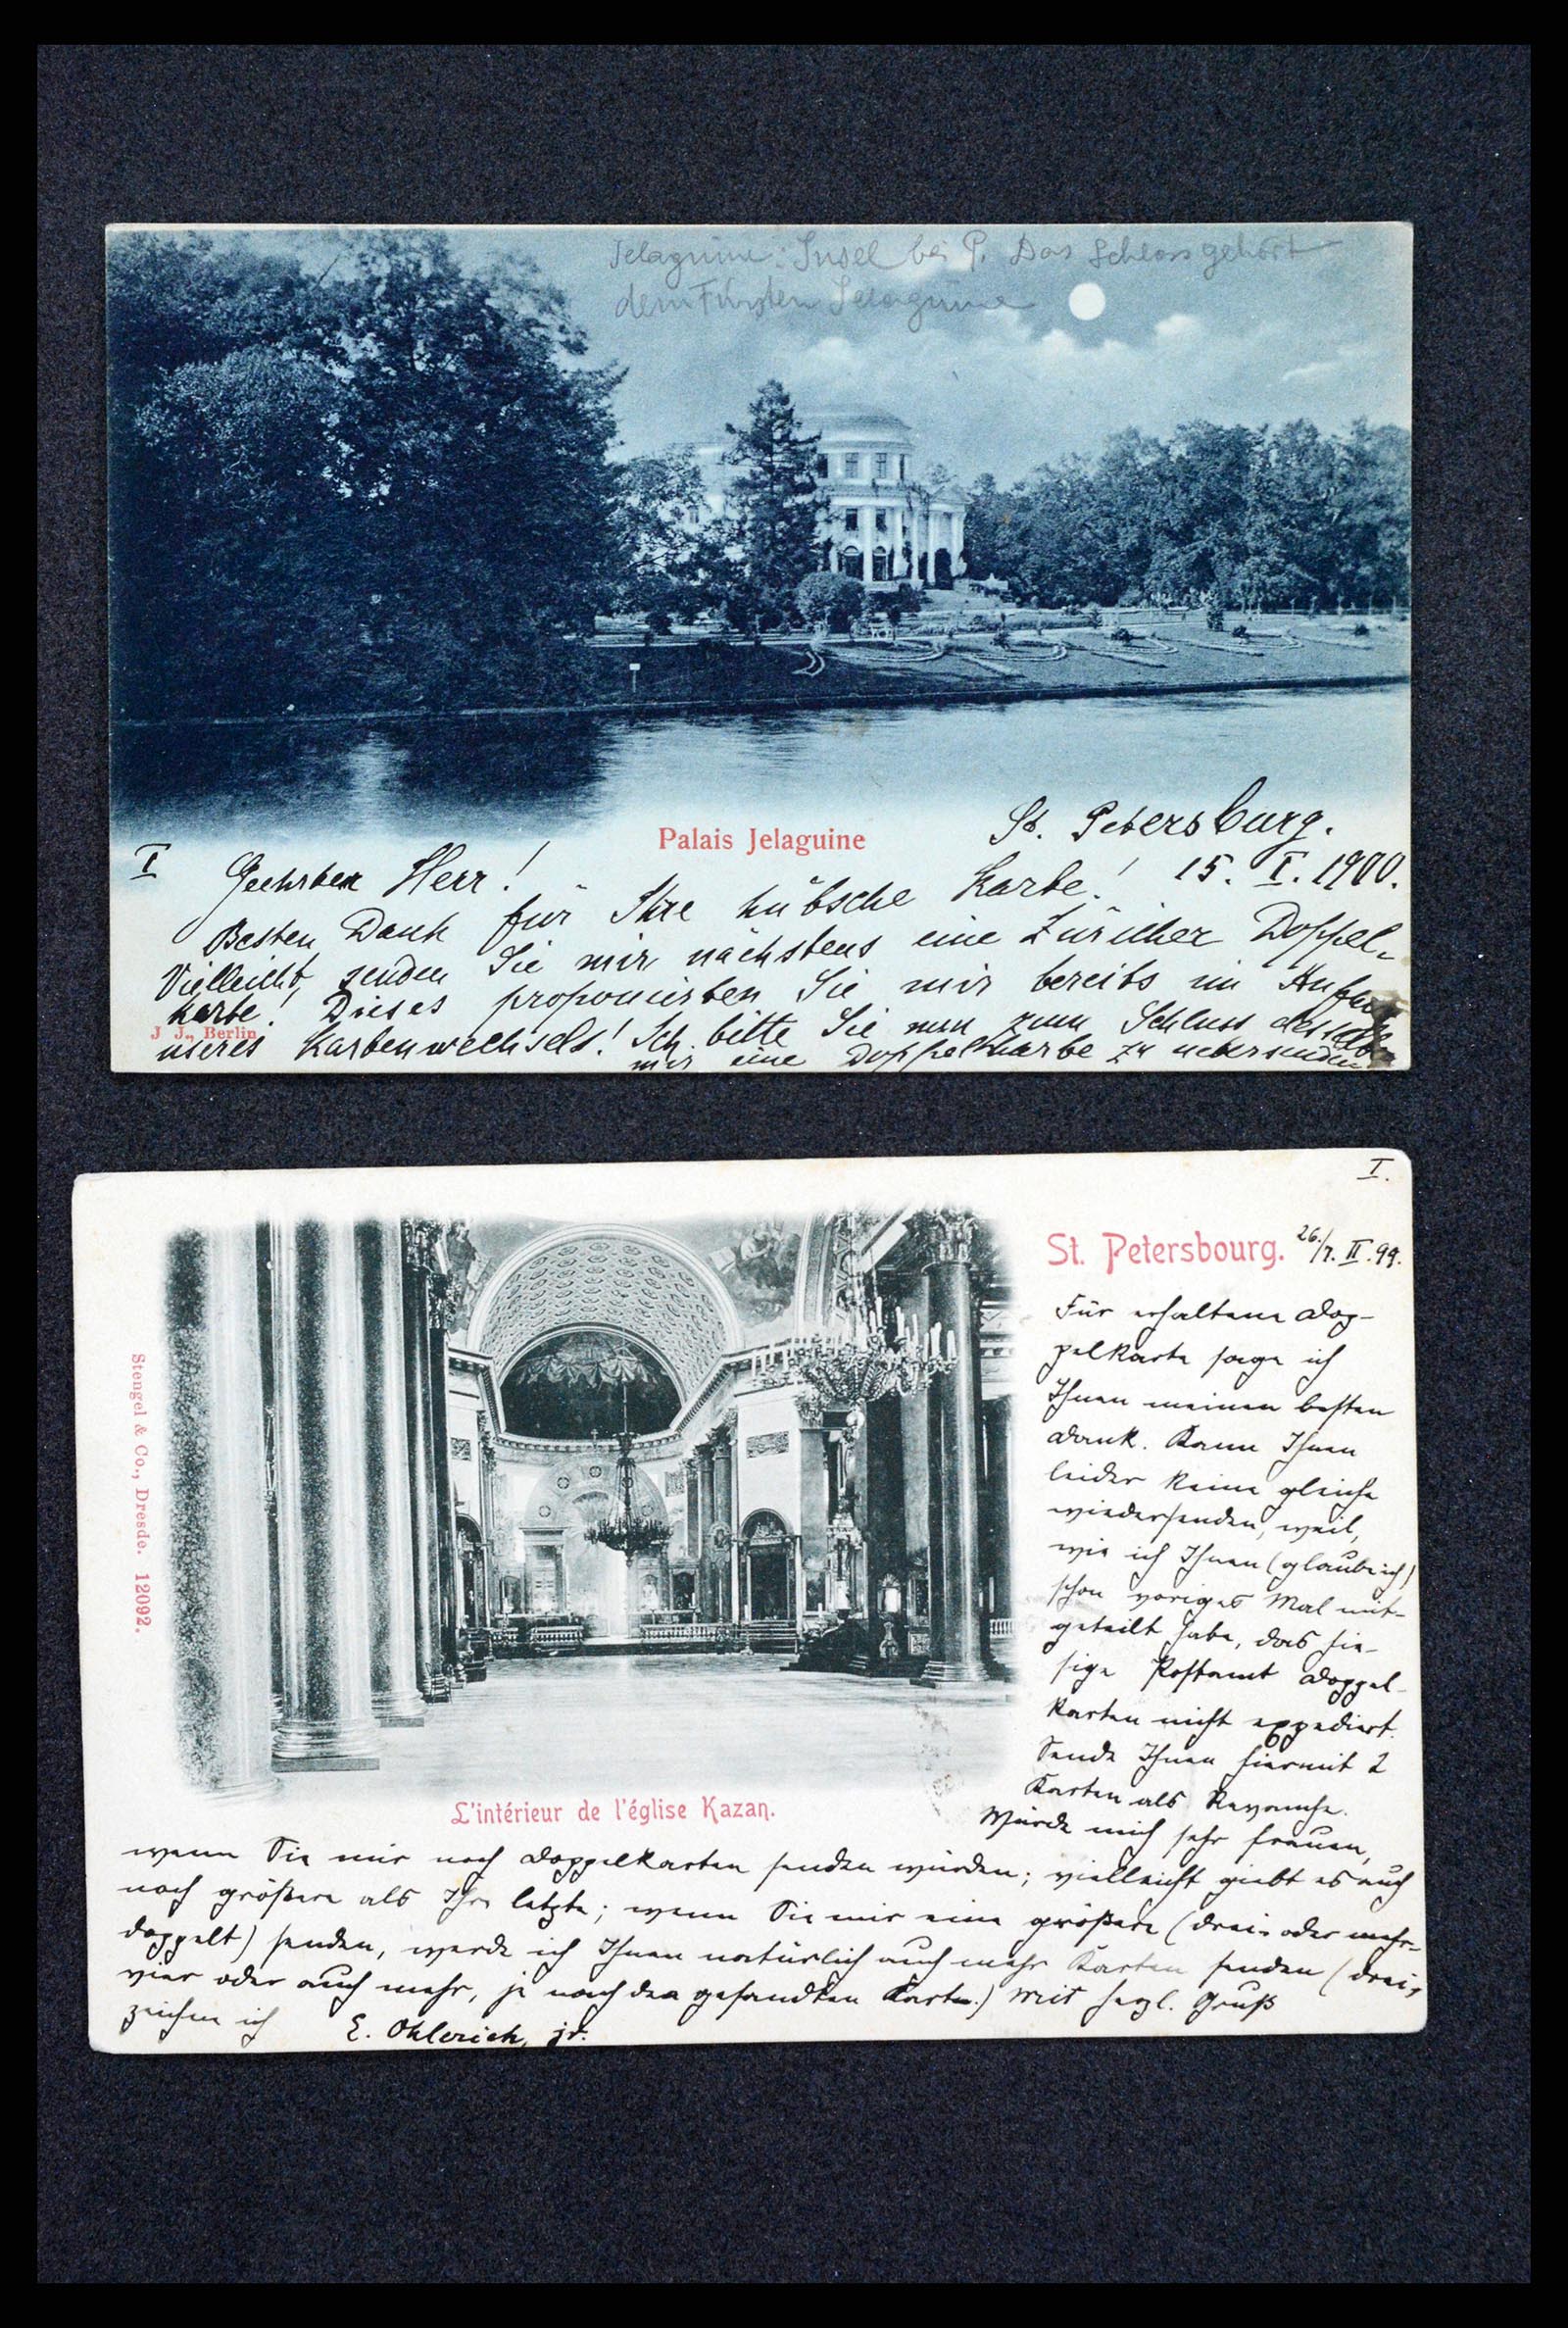 Jelaguine: Insel bei P. Das Schloss gehört
dem Fürsten Jelaguine
Palais Jelaguine
St. Petersburg.
15. I. 1900.
I
Geehrter Herr!
Besten Dank für Ihre hübsche Karte!
Vielleicht, senden Sie mir nächstens eine Züricher Doppel-
karte! Dieses proponierten Sie mir bereits im
unseres Kartenwechsels! Ich bitte Sie nun zum Schluss desselben
mir eine Doppelkarte zu uebersenden
J. J., Berlin
I.
St. Petersbourg. 26./7. II. 99.
Für erhaltene Dop-
pelkarte sage ich
Ihnen meinen besten
Dank. Kann Ihnen
leider keine gleiche
wiedersenden, weil,
wie ich Ihnen (glaube ich)
schon voriges Mal mit-
geteilt habe, das hie-
sige Postamt Doppel-
karten nicht expediert.
Sende Ihnen hiermit 2
Karten als Revanche.
Würde mich sehr freuen,
wenn Sie mir noch Doppelkarten senden würden; vielleicht giebt es auch
noch größere als Ihre letzte; wenn Sie mir eine größere (drei- oder mehr-
doppelt) senden, werde ich Ihnen natürlich auch mehr Karten senden (drei,
vier oder auch mehr, je nach der gesandten Karte.) Mit herzl. Gruß
zeichne ich E. Ohlerich, jr.
L'intérieur de l'église Kazan.
Stengel & Co., Dresde. 12092.